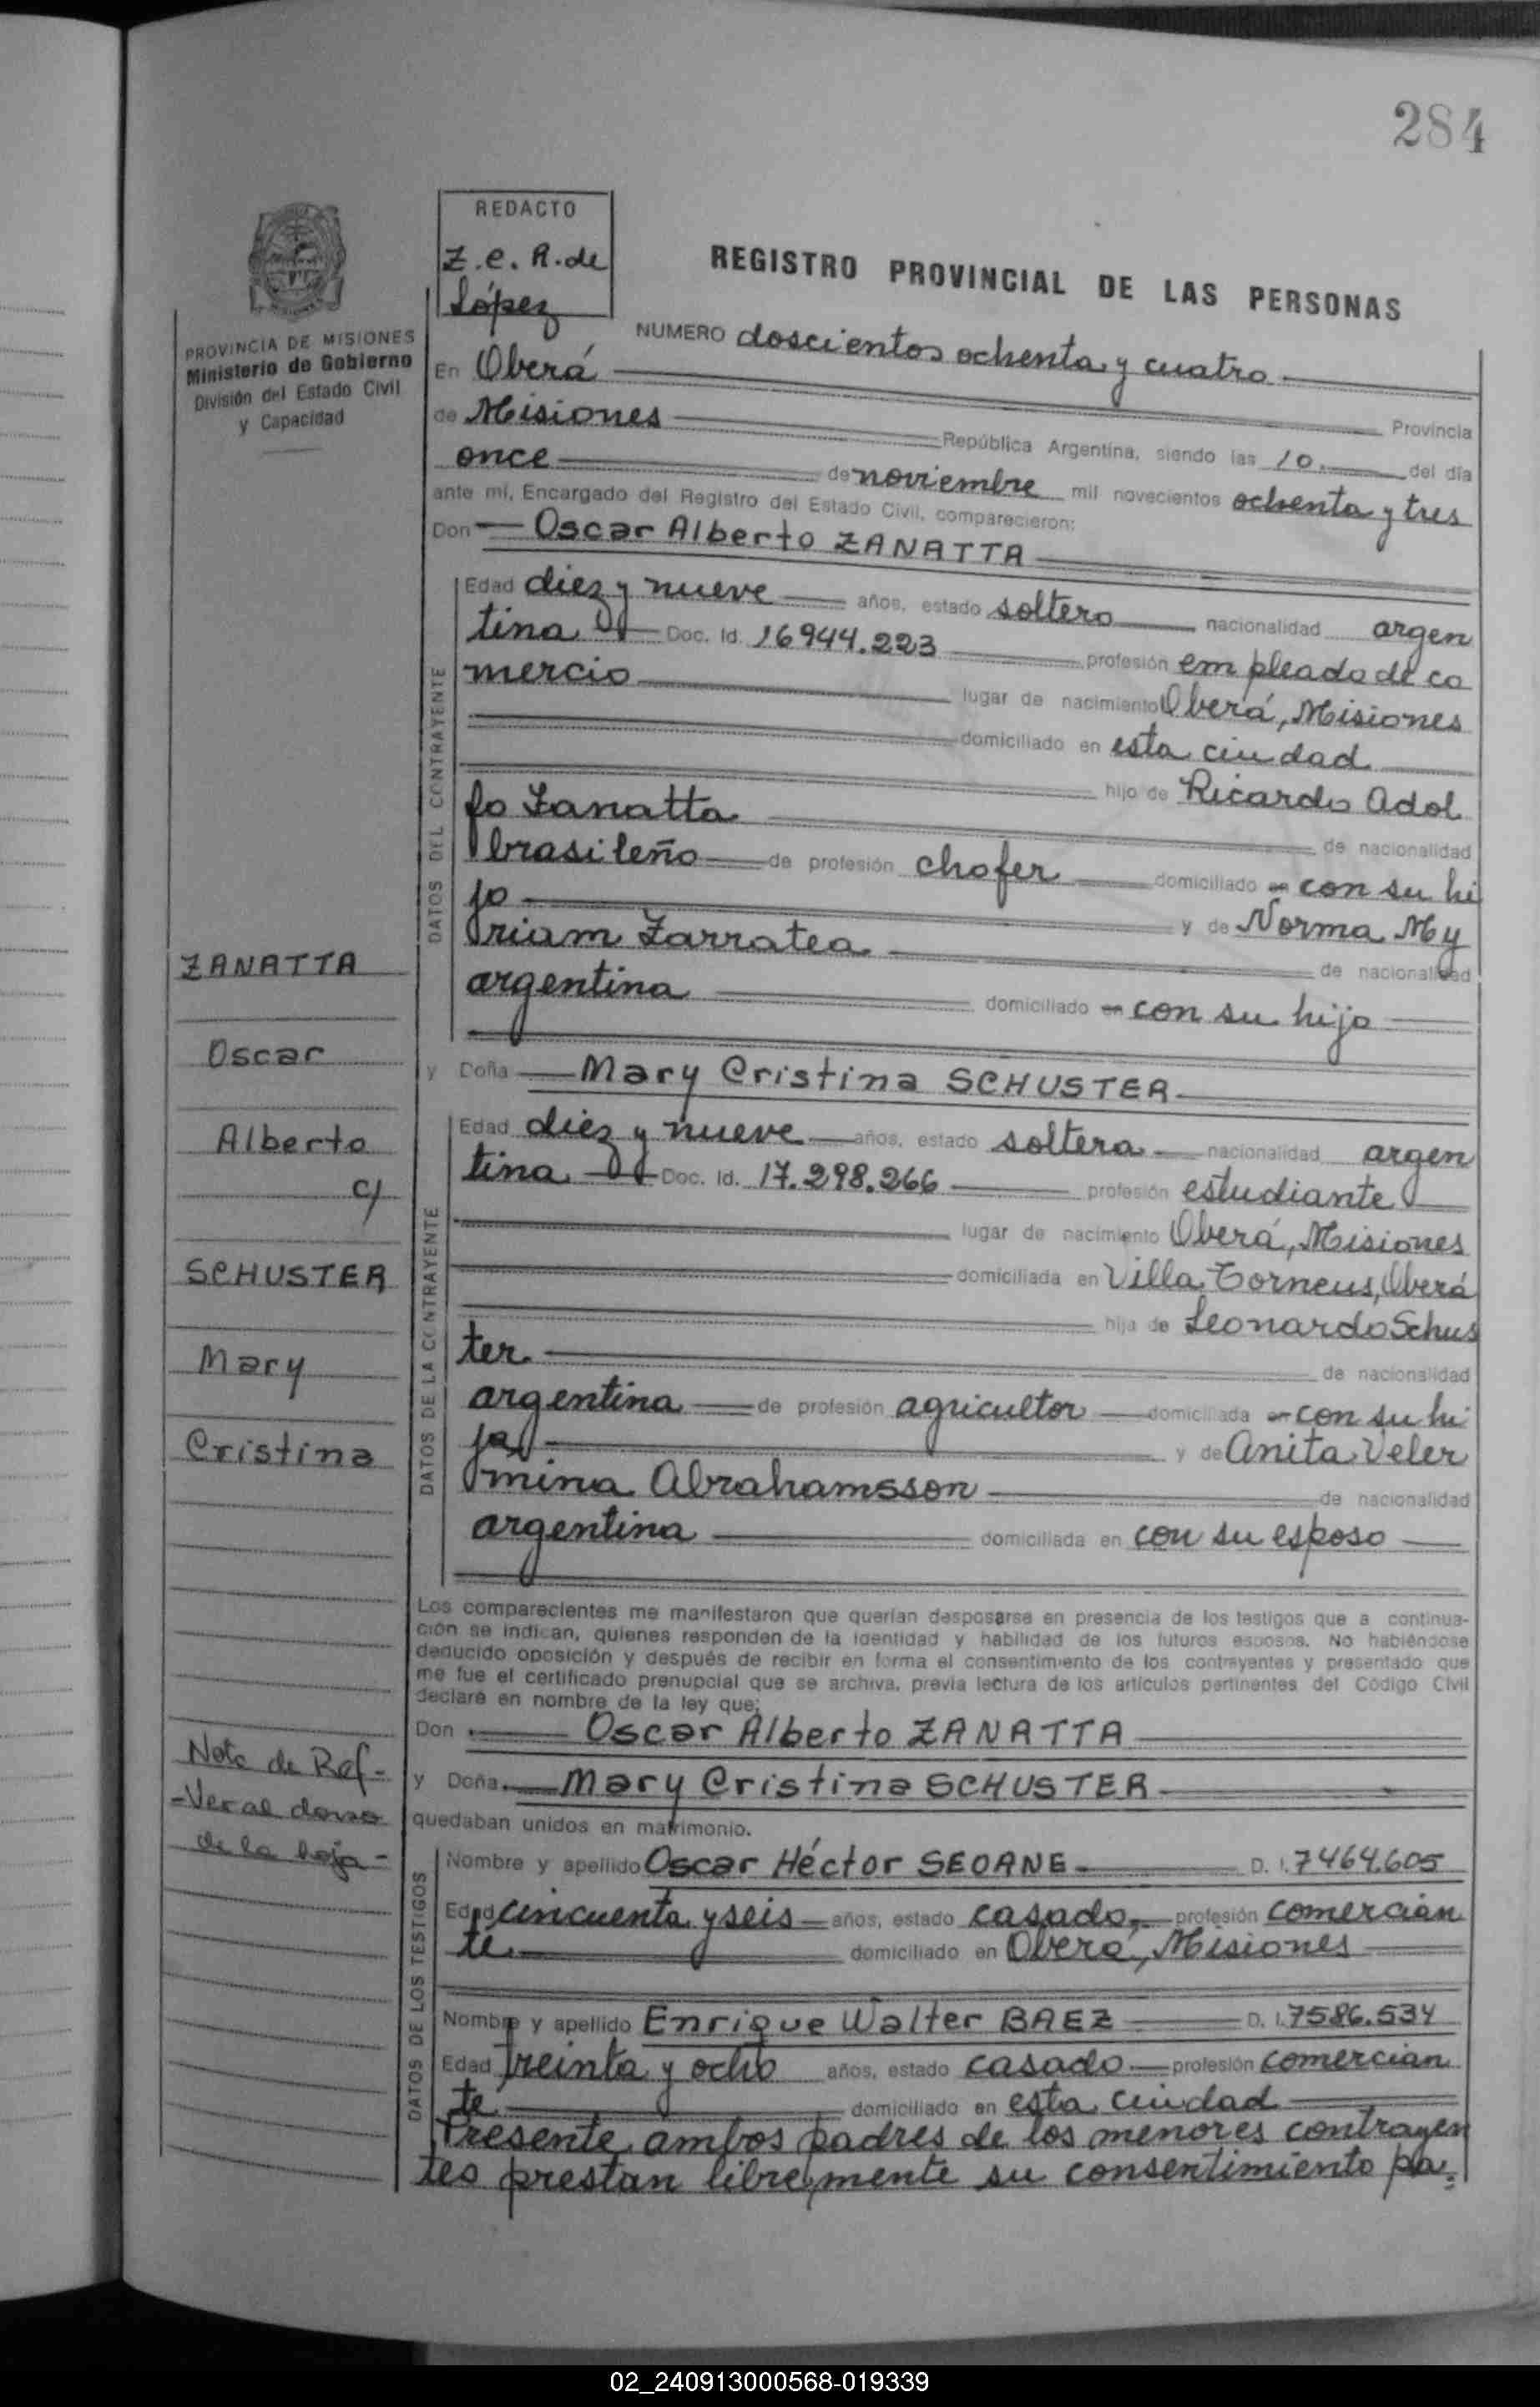 284
REDACTO
Z.e.R.de
López
REGISTRO PROVINCIAL DE LAS PERSONAS
PROVINCIA DE MISIONES
Ministerio de Gobierno
División del Estado Civil
y Capacidad
NUMERO doscientos ochenta y cuatro
En Oberá Provincia
de Misiones República Argentina, siendo las 10. del día
once de noviembre mil novecientos ochenta y tres
ante mí, Encargado del Registro del Estado Civil, comparecieron:
Don Oscar Alberto ZANATTA
DATOS DEL CONTRAYENTE
Edad diez y nueve años, estado soltero nacionalidad argen
tina Doc. Id. 16944.223 profesión empleado de co
mercio lugar de nacimiento Oberá, Misiones
domiciliado en esta ciudad
hijo de Ricardo Adol
fo Zanatta de nacionalidad
brasileño de profesión chofer domiciliado en con su hi
jo y de Norma My
riam Zarratea de nacionalidad
argentina domiciliado en con su hijo
y Doña Mary Cristina SCHUSTER
DATOS DE LA CONTRAYENTE
Edad diez y nueve años, estado soltera nacionalidad argen
tina Doc. Id. 17.298.266 profesión estudiante
lugar de nacimiento Oberá, Misiones
domiciliada en Villa Torneus, Oberá
hija de Leonardo Schus
ter de nacionalidad
argentina de profesión agricultor domiciliada en con su hi
ja y de Anita Veler
mina Abrahamsson de nacionalidad
argentina domiciliada en con su esposo
Los comparecientes me manifestaron que querían desposarse en presencia de los testigos que a continua-
ción se indican, quienes responden de la identidad y habilidad de los futuros esposos. No habiéndose
deducido oposición y después de recibir en forma el consentimiento de los contrayentes y presentado que
me fue el certificado prenupcial que se archiva, previa lectura de los artículos pertinentes del Código Civil
declaré en nombre de la ley que:
Don Oscar Alberto ZANATTA
y Doña Mary Cristina SCHUSTER
quedaban unidos en matrimonio.
DATOS DE LOS TESTIGOS
Nombre y apellido Oscar Héctor SEOANE D. I. 7464.605
Edad cincuenta y seis años, estado casado profesión comercian
te domiciliado en Oberá, Misiones
Nombre y apellido Enrique Walter BAEZ D. I. 7586.534
Edad treinta y ocho años, estado casado profesión comercian
te domiciliado en esta ciudad
Presente ambos padres de los menores contrayen
tes prestan libremente su consentimiento pa.
ZANATTA
Oscar
Alberto
c/
SCHUSTER
Mary
Cristina
Nota de Ref-
-Ver al dorso
de la hoja-
02_240913000568-019339